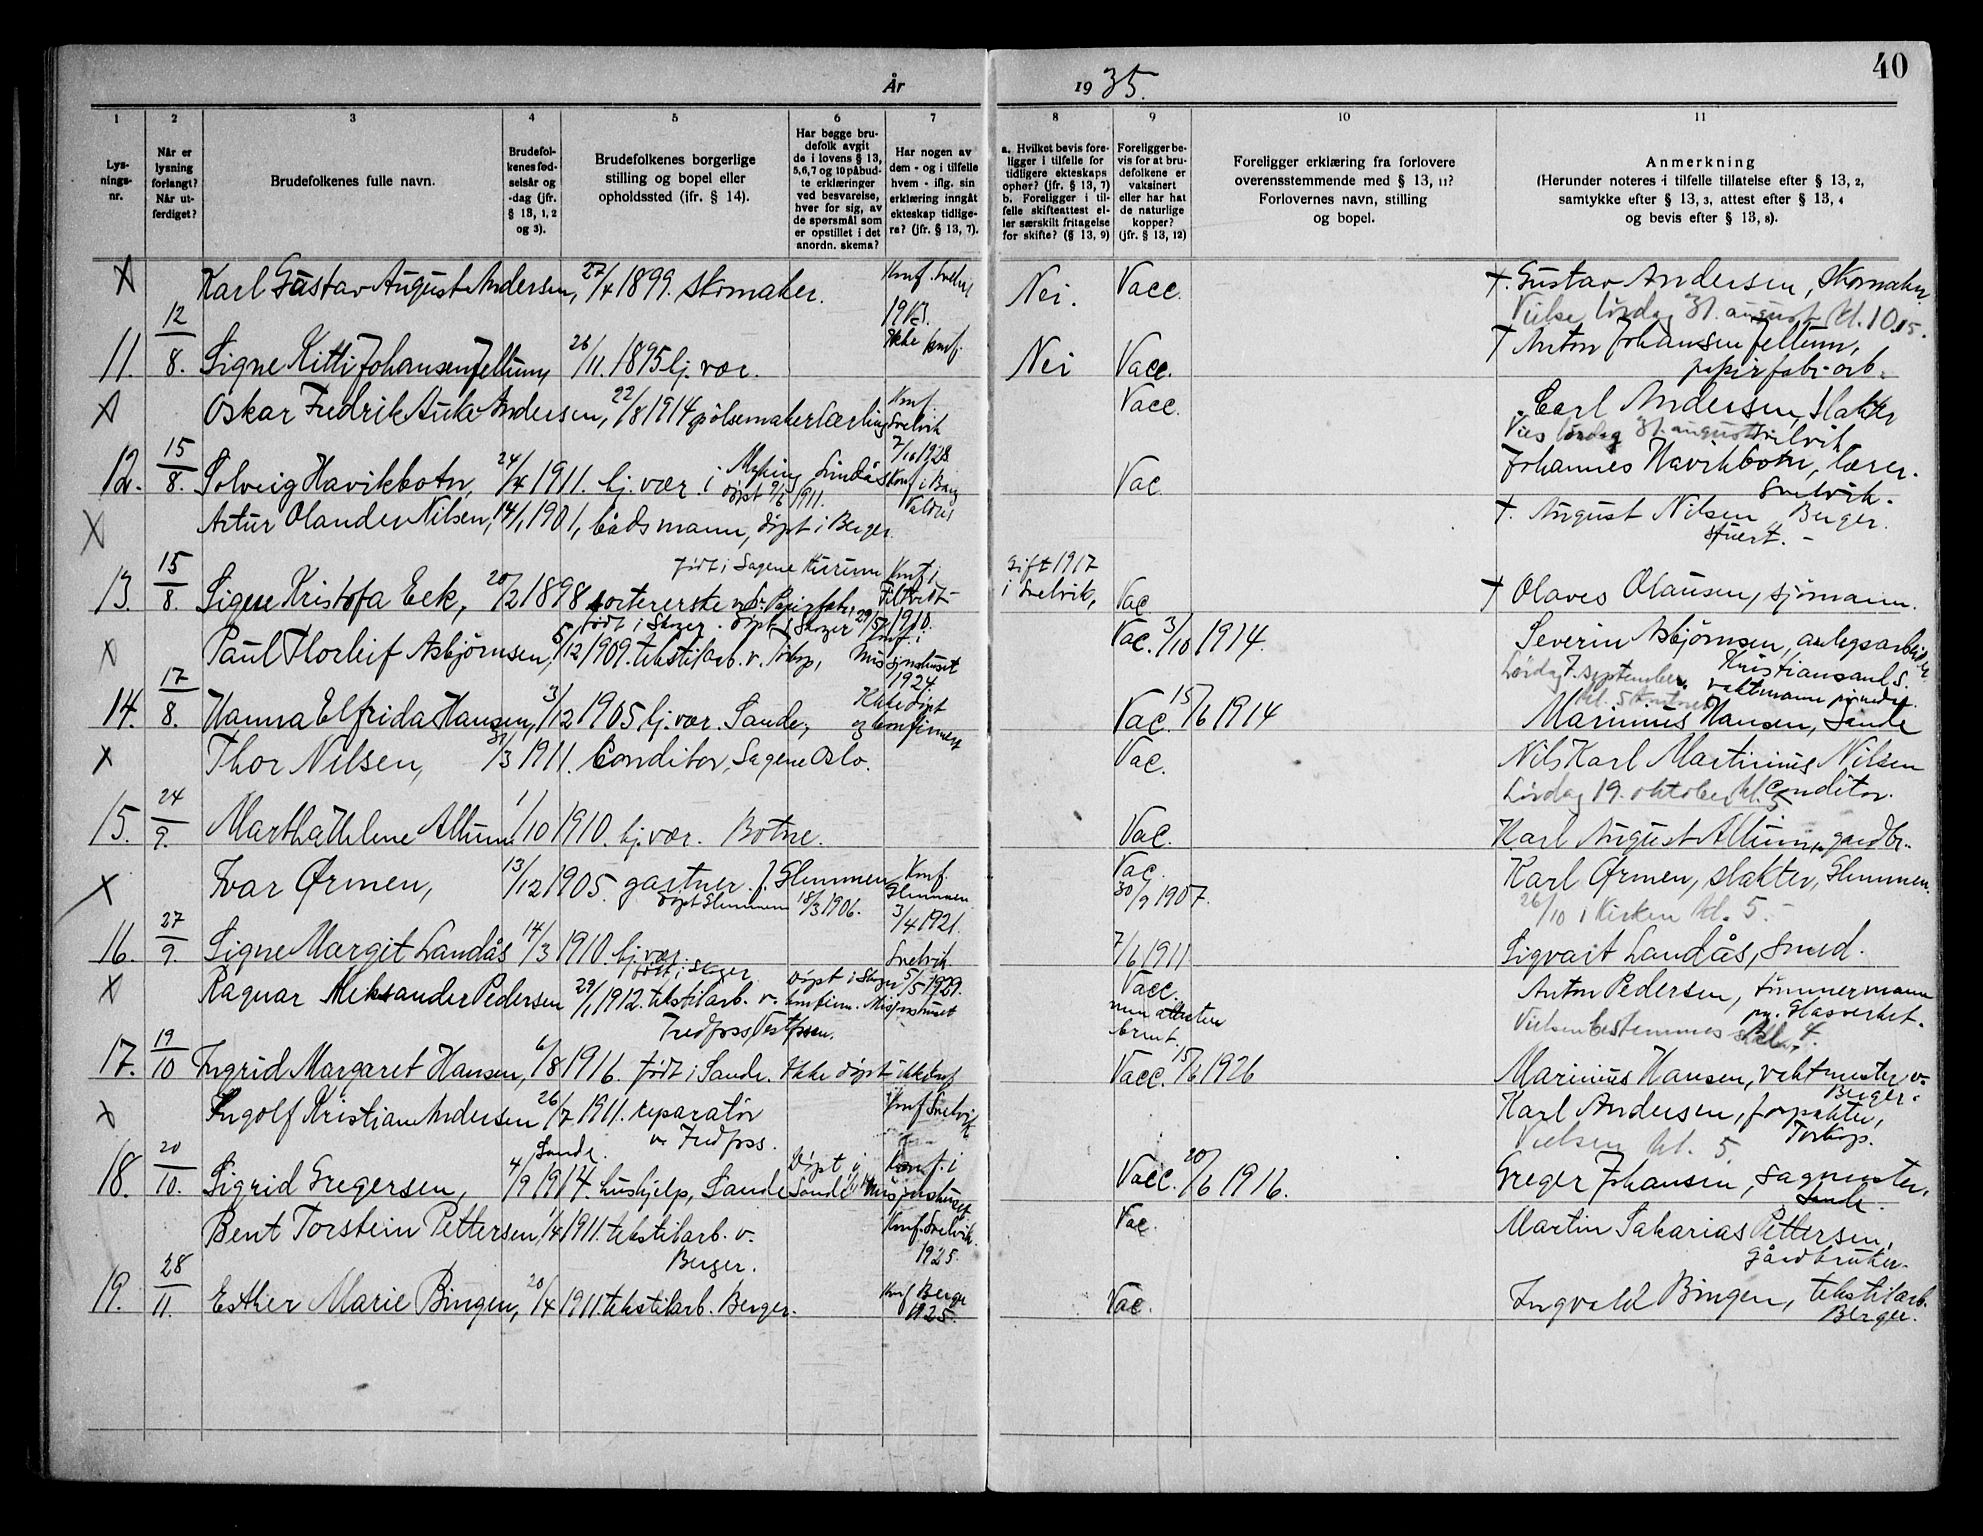 40
År 1935.
1 2 3 4 5 6 7 8 9 10 11
Lys-
nings-
nr.
Når er
lysning
forlangt?
Når ut-
ferdiget?
Brudefolkenes fulle navn.
Brudefol-
kenes fød-
selsår og
-dag (jfr.
§ 13, 1, 2
og 3).
Brudefolkenes borgerlige
stilling og bopel eller
opholdssted (jfr. § 14).
Har begge bru-
defolk avgit
de i lovens § 13,
5,6,7 og 10 påbud-
te erklæringer
ved besvarelse,
hver for sig, av
de spørsmål som
er opstillet i det
anordn. skema?
Har nogen av
dem - og i tilfelle
hvem - iflg. sin
erklæring inngått
ekteskap tidlige-
re? (jfr. § 13, 7).
a. Hvilket bevis fore-
ligger i tilfelle for
tidligere ekteskaps
ophør? (jfr. § 13, 7)
b. Foreligger i til-
felle skifteattest el-
ler særskilt fritagelse
for skifte? (§ 13, 9)
Foreligger be-
vis for at bru-
defolkene er
vaksinert
eller har hat
de naturlige
kopper?
(jfr. § 13, 12)
Foreligger erklæring fra forlovere
overensstemmende med § 13, 11?
Forlovernes navn, stilling
og bopel.
Anmerkning
(Herunder noteres i tilfelle tillatelse efter § 13, 2,
samtykke efter § 13, 3, attest efter § 13, 4
og bevis efter § 13, 8).
X Karl Gustav August Andersen, 27/4 1899. skomaker. Konf. Svelvik 1913. Nei. Vacc. †. Gustav Andersen, skomaker.
Vielse lørdag 31. august kl. 10.15.
11. 12/8. Signe Kitti Johansen Jellum, 26/11. 1895 hj. vær. Ikke konf. Nei Vacc. † Anton Johansen Jellum,
papirfabr. arb.
X Oskar Fredrik Andersen, 22/8 1914 pølsemakerlærling Konf. Svelvik 7/10 1928. Vacc. Carl Andersen, slakter
Vies lørdag 31. august Svelvik
12. 15/8. Solveig Havikbotn, 24/4 1911. hj. vær. i Lindås døpt 9/6 1911. Konf. i Bang Valdres Vac. Johannes Havikbotn, lærer.
Svelvik.
X Artur Olander Nilsen, 14/1 1901, bådsmann, døpt i Berger. †. August Nilsen Berger.
stuert. -
født i Sagene
13. 15/8. Signe Kristofa Eek, 20/2 1898 sortererske Konf i Filtvedt 1910. gift 1917
i Svelvik, Vac. † Olaves Olausen, sjømann.
født i Skoger. døpt i Skoger
X Paul Thorleif Asbjørnsen, 5/12 1909. tekstilarb. v. Konf. i Misjonshuset 1924. Vac. 3/10 1914. Severin Asbjørnsen, anlegsarbeider
Kristiansand S.
Lørdag 7. september.
14. 17/8. Hanna Elfrida Hansen, 3/12 1905 hj. vær. Sande, Ikke døpt og konfirmert Vac. 15/6 1914 Marinius Hansen, Sande
X Thor Nilsen, 31/3 1911. Conditor, Sagene Oslo. Vac. Nils Karl Martinius Nilsen
Conditor.
Lørdag 19. oktober kl. 5
15. 24/9. Martha Helene Allum 1/10 1910. hj. vær. Botne. Vac. Karl August Allum, gardbr.
X Ivar Ørmen, 13/12 1905. gartner. f. Glemmen døpt Glemmen 18/3 1906. Konf. Glemmen 3/4 1921. Vac. 30/9 1907. Karl Ørmen, slakter, Glemmen.
26/10 i Kirken kl. 5. -
16. 27/9. Signe Margit Landås 14/3 1910. hj. vær. Svelvik. 7/6 1911 Sigvart Landås, smed.
født i Skoger
X Ragnar Aleksander Pedersen 29/1 1912. tekstilarb. v. Fredfoss Døpt i Skoger konfirm. Misjonshuset 5/5 1929. Vacc.
men attesten
brent. Anton Pedersen, tømmermann
Glasverket.
Vielsen bestemmes kl. 4.
17. 19/10 Ingrid Margaret Hansen, 6/8 1916. født i Sande. Ikke døpt ikke konf Vacc. 15/6 1926 Marinius Hansen, vaktmester v.
Berger.
X Ingolf Kristian Andersen 26/7 1911. reparatør
v. Fredfoss. Konf. Svelvik Karl Andersen, forpakter,
Torkop.
Vielsen kl. 5
Sande.
18. 20/10. Sigrid Gregersen, 4/9 1914. hushjelp, Sande Døpt i Sande Konf. i Misjonshuset Vacc. 20/6 1916. Greger Johansen, sagmester,
Sande.
Bent Torstein Pettersen, 1/4 1911. tekstilarb. v.
Berger. Konf. Svelvik.
1925. Vac. Martin Sakarias Pettersen,
gårdbruker.
19. 28/11. Esther Marie Bingen, 20/4 1911 tekstilarb. Berger. Konf Berger
1925. Vac. Ingvald Bingen, tekstilarb.
Berger.